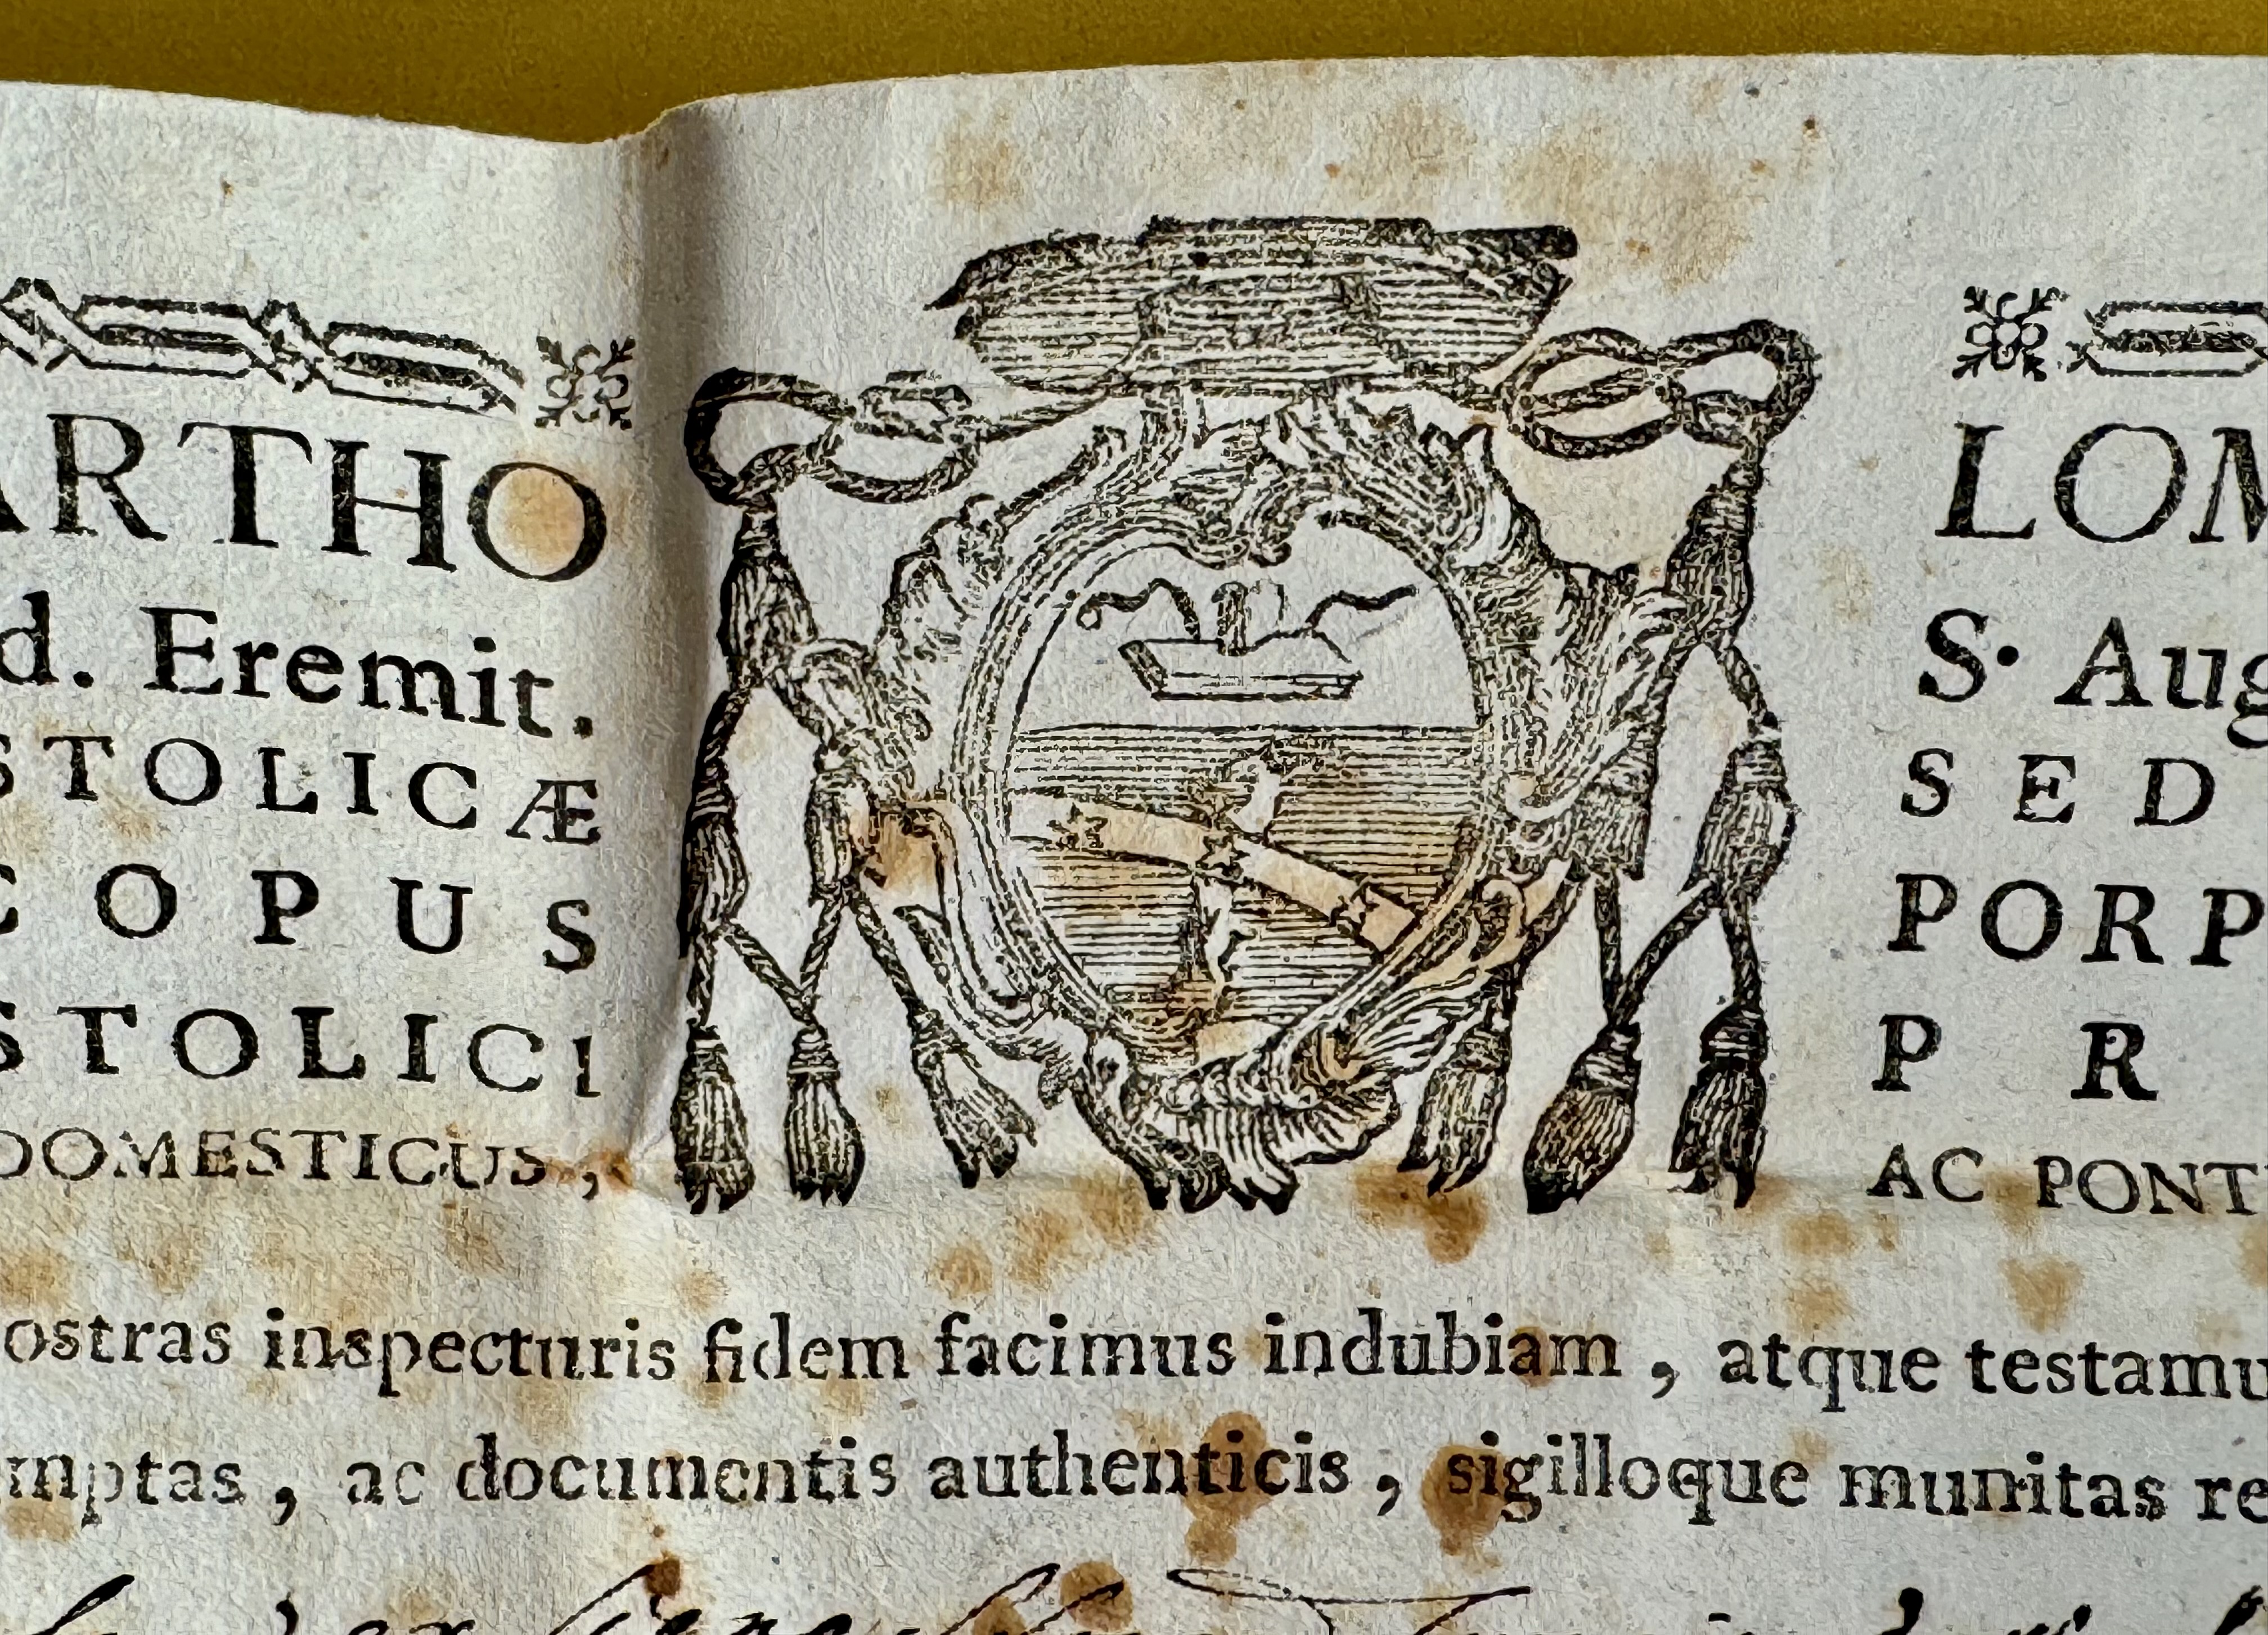 ARTHO LOM
d. Eremit. S. Aug
STOLICÆ SED
COPUS PORP
STOLICI P R
DOMESTICUS, AC PONT
ostras inspecturis fidem facimus indubiam, atque testamu
mptas, ac documentis authenticis, sigilloque munitas re